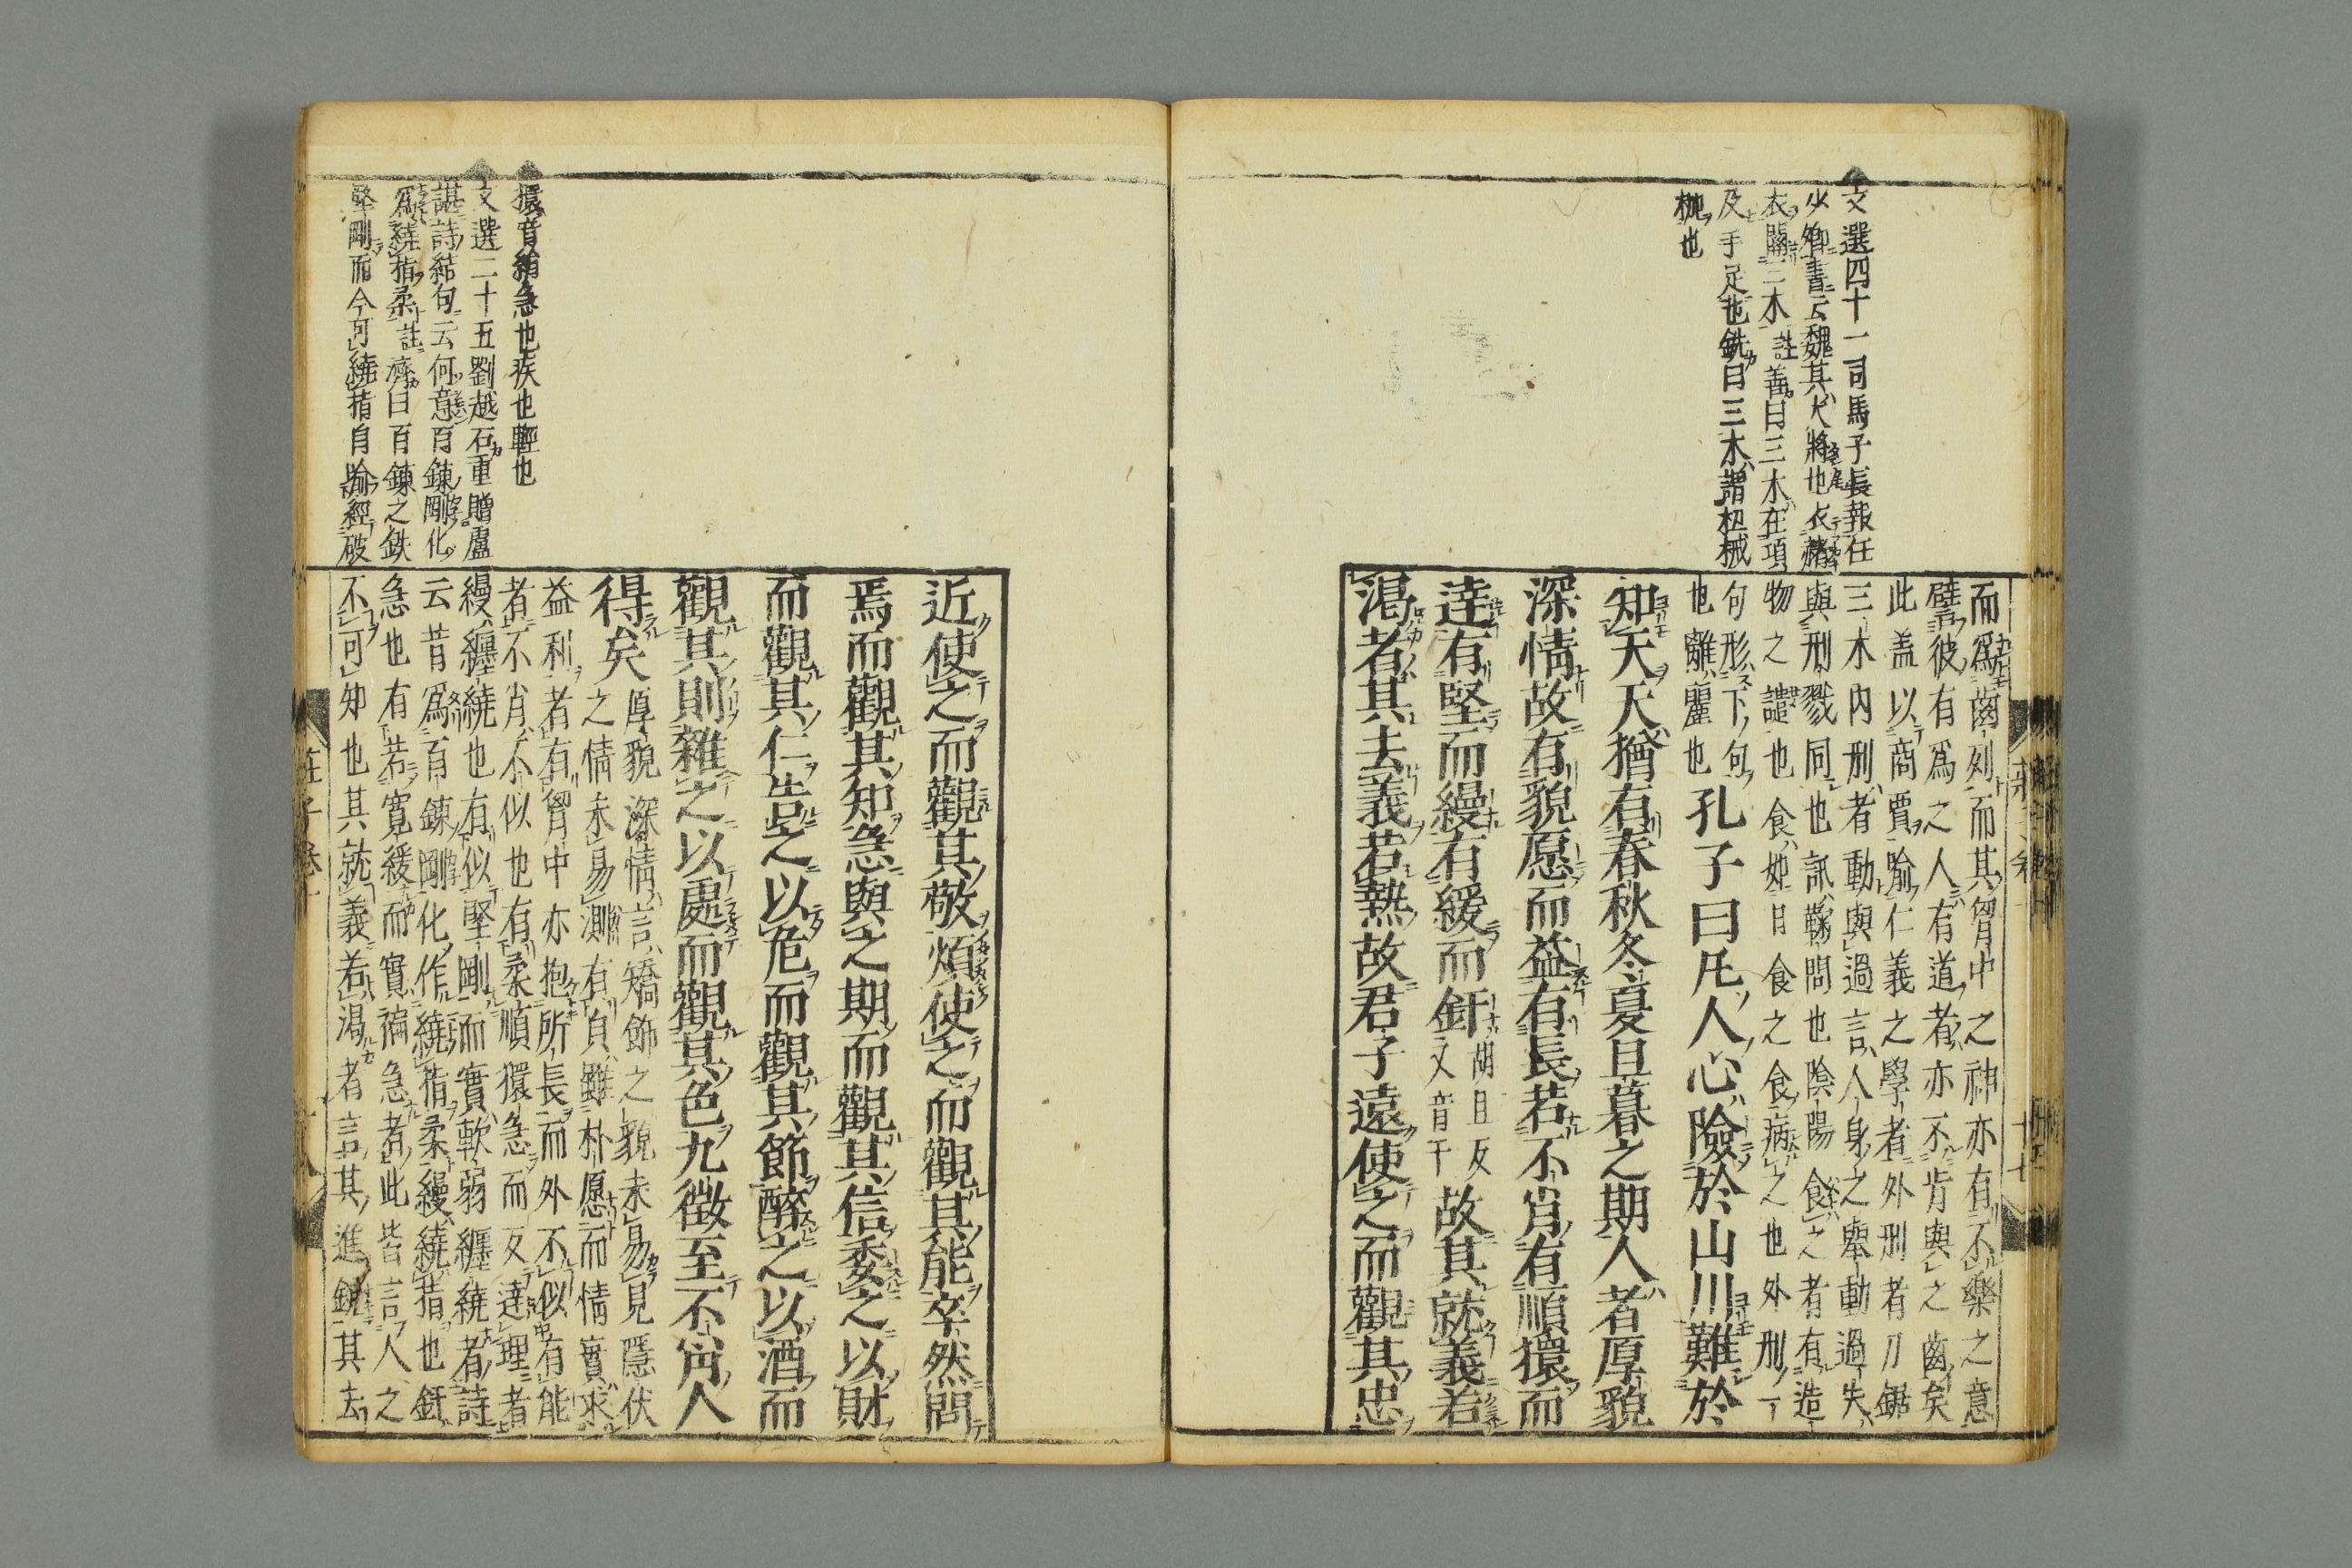 文選四十一司馬子長報任
少卿書云魏其大將也衣赭
衣關三木註善曰三木在項
及手足也銑曰三木謂杻械
枷也
而爲齒列而其胷中之神亦有不樂之意
譬彼有爲之人有道者亦不肯與之齒矣
此盖以商賈喻仁義之學者外刑者刀鋸
三木內刑者動與過言人身之舉動過失
與刑戮同也訊鞫問也陰陽食之者有造
物之譴也食如日食之食病之也外刑一
句形下句
也離麗也孔子曰凡人心險於山川難於
知天天猶有春秋冬夏旦暮之期人者厚貌
深情故有貌愿而益有長若不肖有順獧而
達有堅而縵有緩而釬胡旦反又音干故其就義若
渴者其去義若熱故君子遠使之而觀其忠
莊子卷十
獧音絹急也疾也輕也
文選二十五劉越石重贈盧
諶詩結句云何意百鍊剛化
爲繞指柔註濟曰百鍊之鉄
堅剛而今可繞指自喻經破
近使之而觀其敬煩使之而觀其能卒然問
焉而觀其知急與之期而觀其信委之以財
而觀其仁告之以危而觀其節醉之以酒而
觀其則雜之以處而觀其色九徵至不肖人
得矣厚貌深情言矯飾之貌未易見隱伏
之情未易測有貞雖朴愿而情實求
益利者有胷中亦抱所長而外不似有能
者不肖不似也有柔順獧急而反達理者
縵纏繞也有似堅剛而實軟弱纏繞者詩
云昔爲百鍊剛化作繞指柔縵繞指也釬
急也有若寬緩而實褊急者此皆言人之
不可知也其就義若渴者言其進銳其去